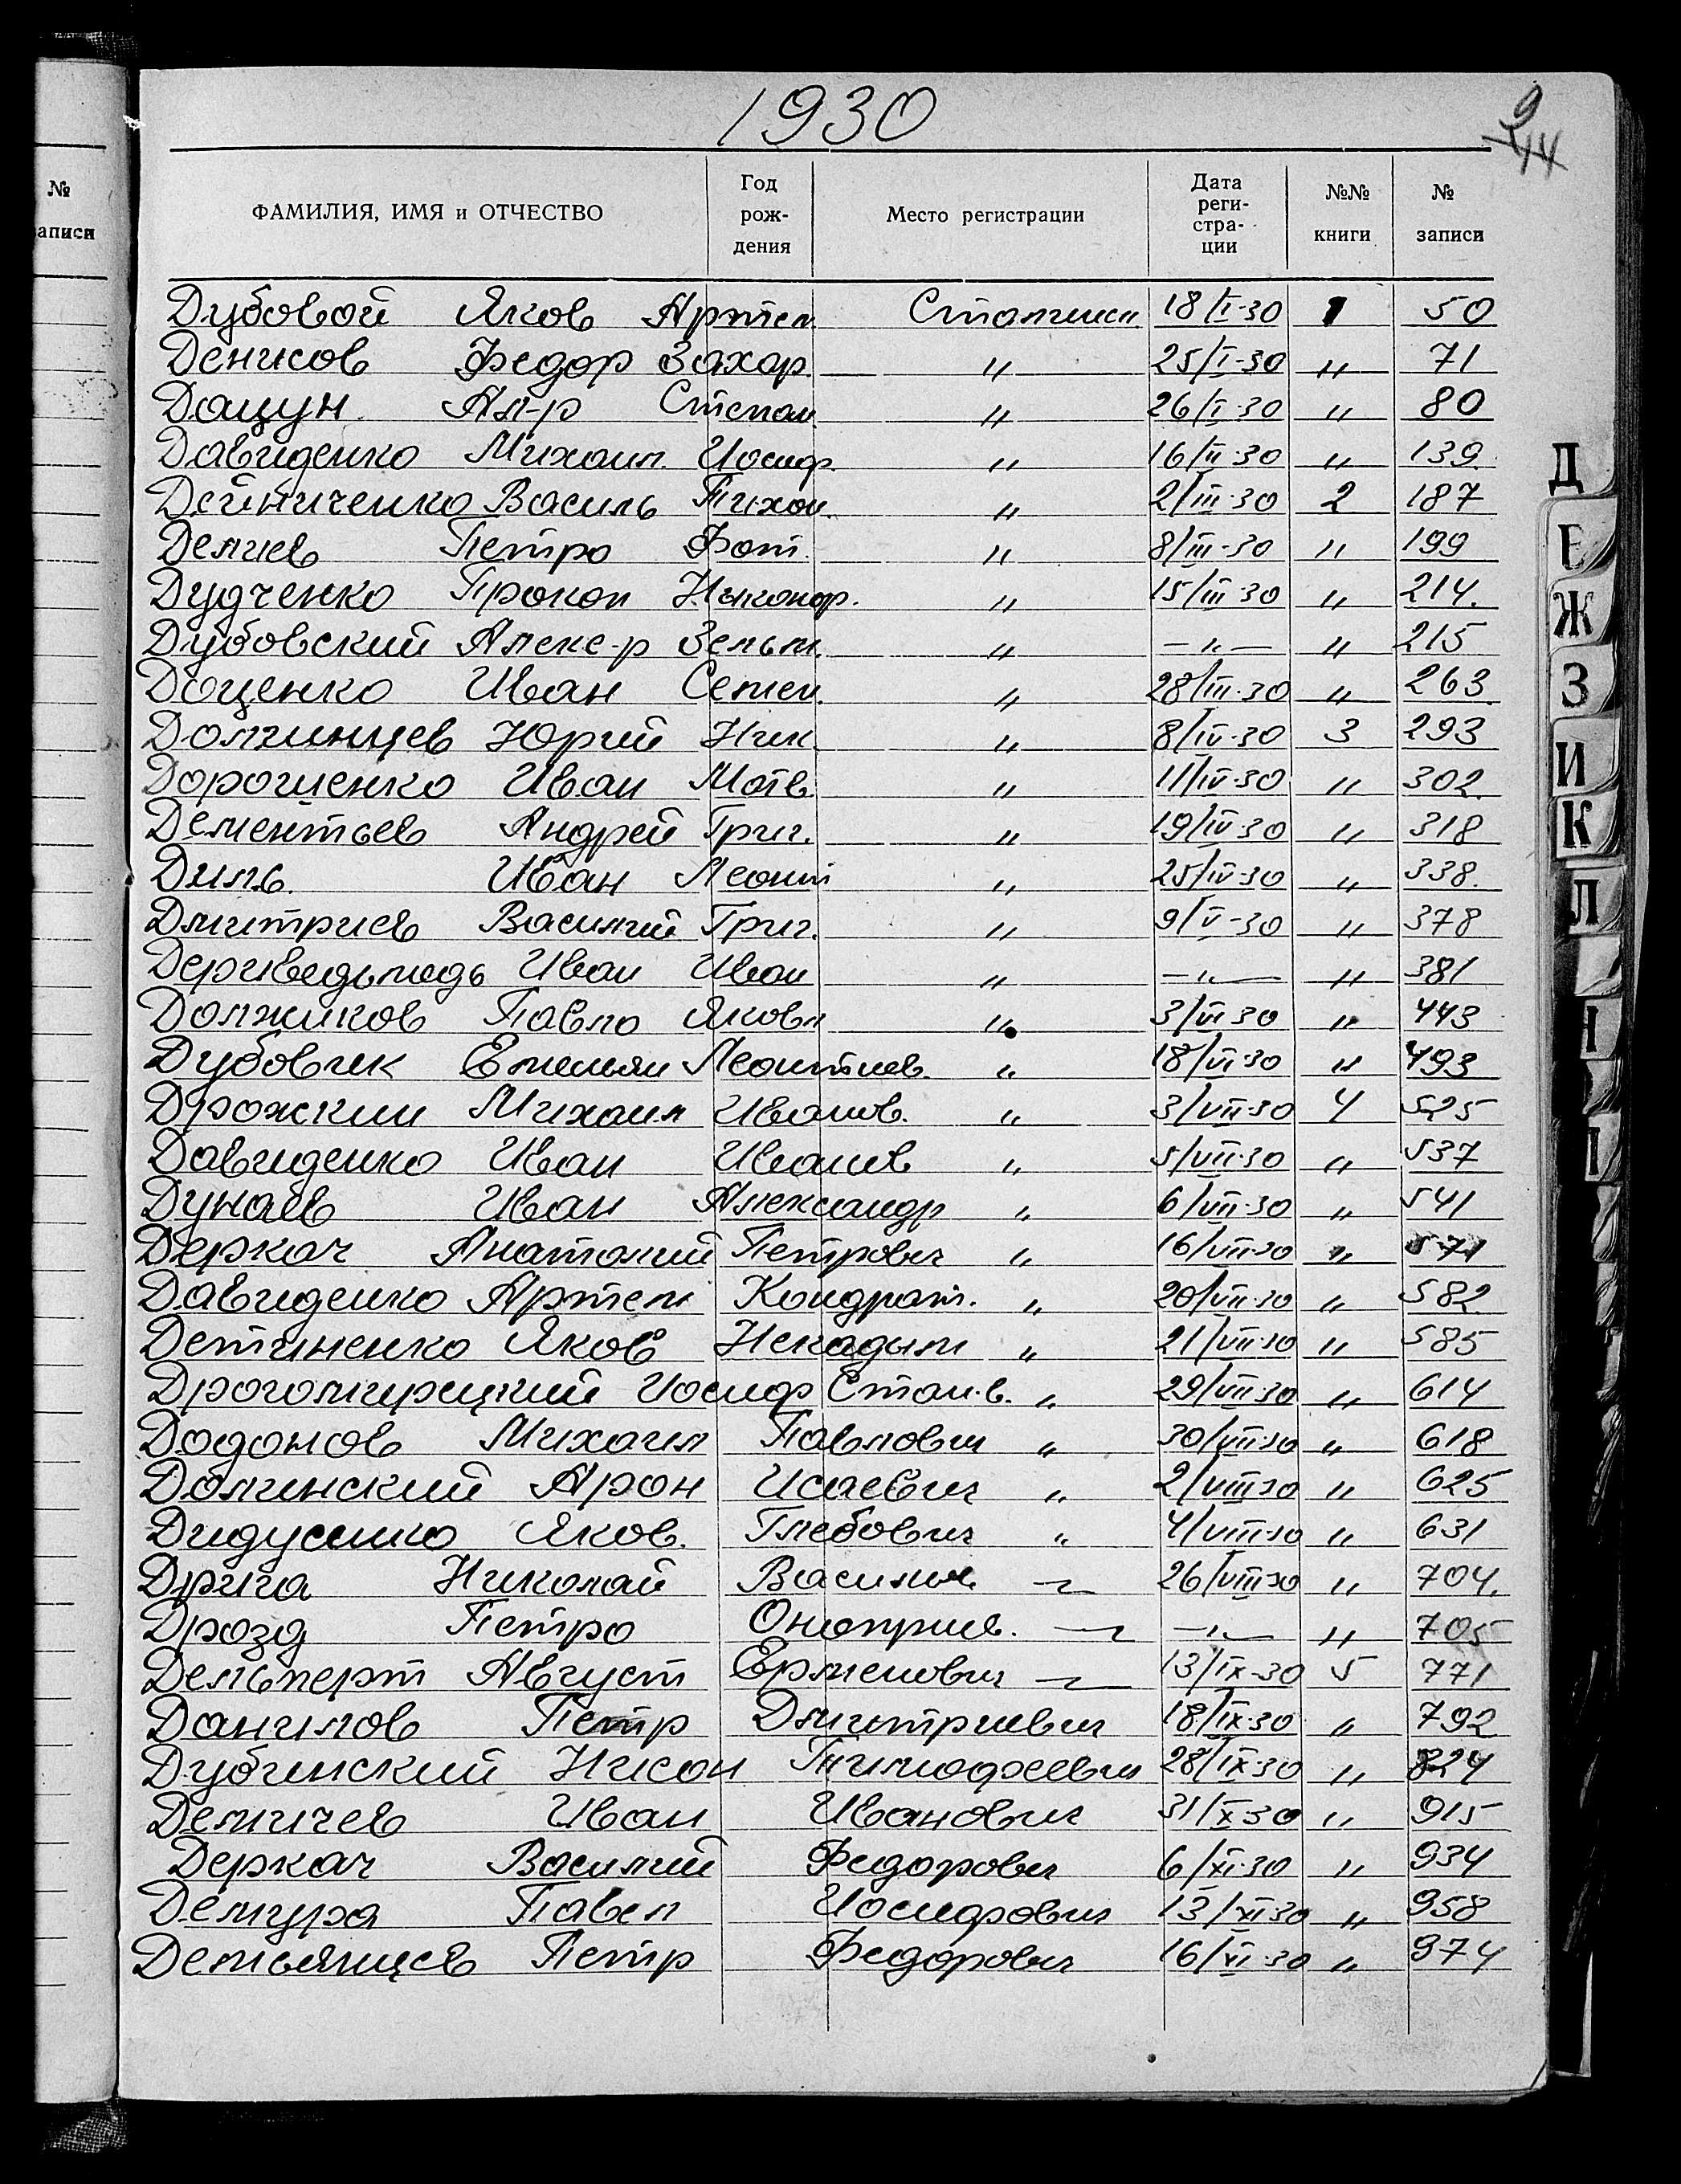 1930
9
14
№
записи
ФАМИЛИЯ, ИМЯ и ОТЧЕСТВО Год рож-дения Место регистрации Дата реги-стра-ции №№ книги № записи
Дубовой Яков Артем. 18/I-30 1 50
Денисов Федор Захар. " 25/I-30 " 71
Дацун Ал-р Степан. " 26/I-30 " 80
Давиденко Михаил Иосиф. " 16/II-30 " 139
Дейниченко Василь Тихон. " 2/III-30 2 187
Демиев Петро Фот. " 8/III-30 " 199
Дудченко Прокоп Никонор. " 15/III-30 " 214.
Дубовский Алекс-р Зельм. " —"— " 215
Доценко Иван Семен. " 28/III-30 " 263
Долинцев Юрий Ник. " 8/IV-30 3 293
Дорошенко Иван Матв. " 11/IV-30 " 302.
Дементьев Андрей Григ. " 19/IV-30 " 318
Диль Иван Леонт " 25/IV-30 " 338.
Дмитриев Василий Григ. " 9/V-30 " 378
Иван Иван " —"— " 381
Должиков Павло Яковл " 3/VI-30 " 443
Дубовик Емельян Леонтиев. " 18/VI-30 " 493
Дрожжин Михаил Иванов. " 3/VII-30 4 525
Давиденко Иван Иванов " 5/VII-30 " 537
Дунаев Иван Александр " 6/VII-30 " 541
Деркач Анатолий Петрович " 16/VII-30 " 571
Давиденко Артем Кондрат. " 20/VII-30 " 582
Детиненко Яков " 21/VII-30 " 585
Драгомирецкий Иосиф Стан-в. " 29/VII-30 " 614
Додонов Михаил Павлович " 30/VII-30 " 618
Долинский Арон Исаевич " 2/VIII-30 " 625
Дидусенко Яков. Глебович " 4/VIII-30 " 631
Дрига Николай Василье. " 26/VIII-30 " 704.
Дрозд Петро Оноприев. " —"— " 705
Дельперт Август " 13/IX-30 5 771
Данилов Петр Дмитриевич 18/IX-30 " 792
Дубинский Нисон Тимофеевич 28/IX-30 " 824
Демичев Иван Иванович 31/X-30 " 915
Деркач Василий Федорович 6/XI-30 " 934
Демура Павел Иосифович 13/XI-30 " 958
Демьянцев Петр Федорович 16/XI-30 " 974
Д
Е
Ж
З
И
К
Л